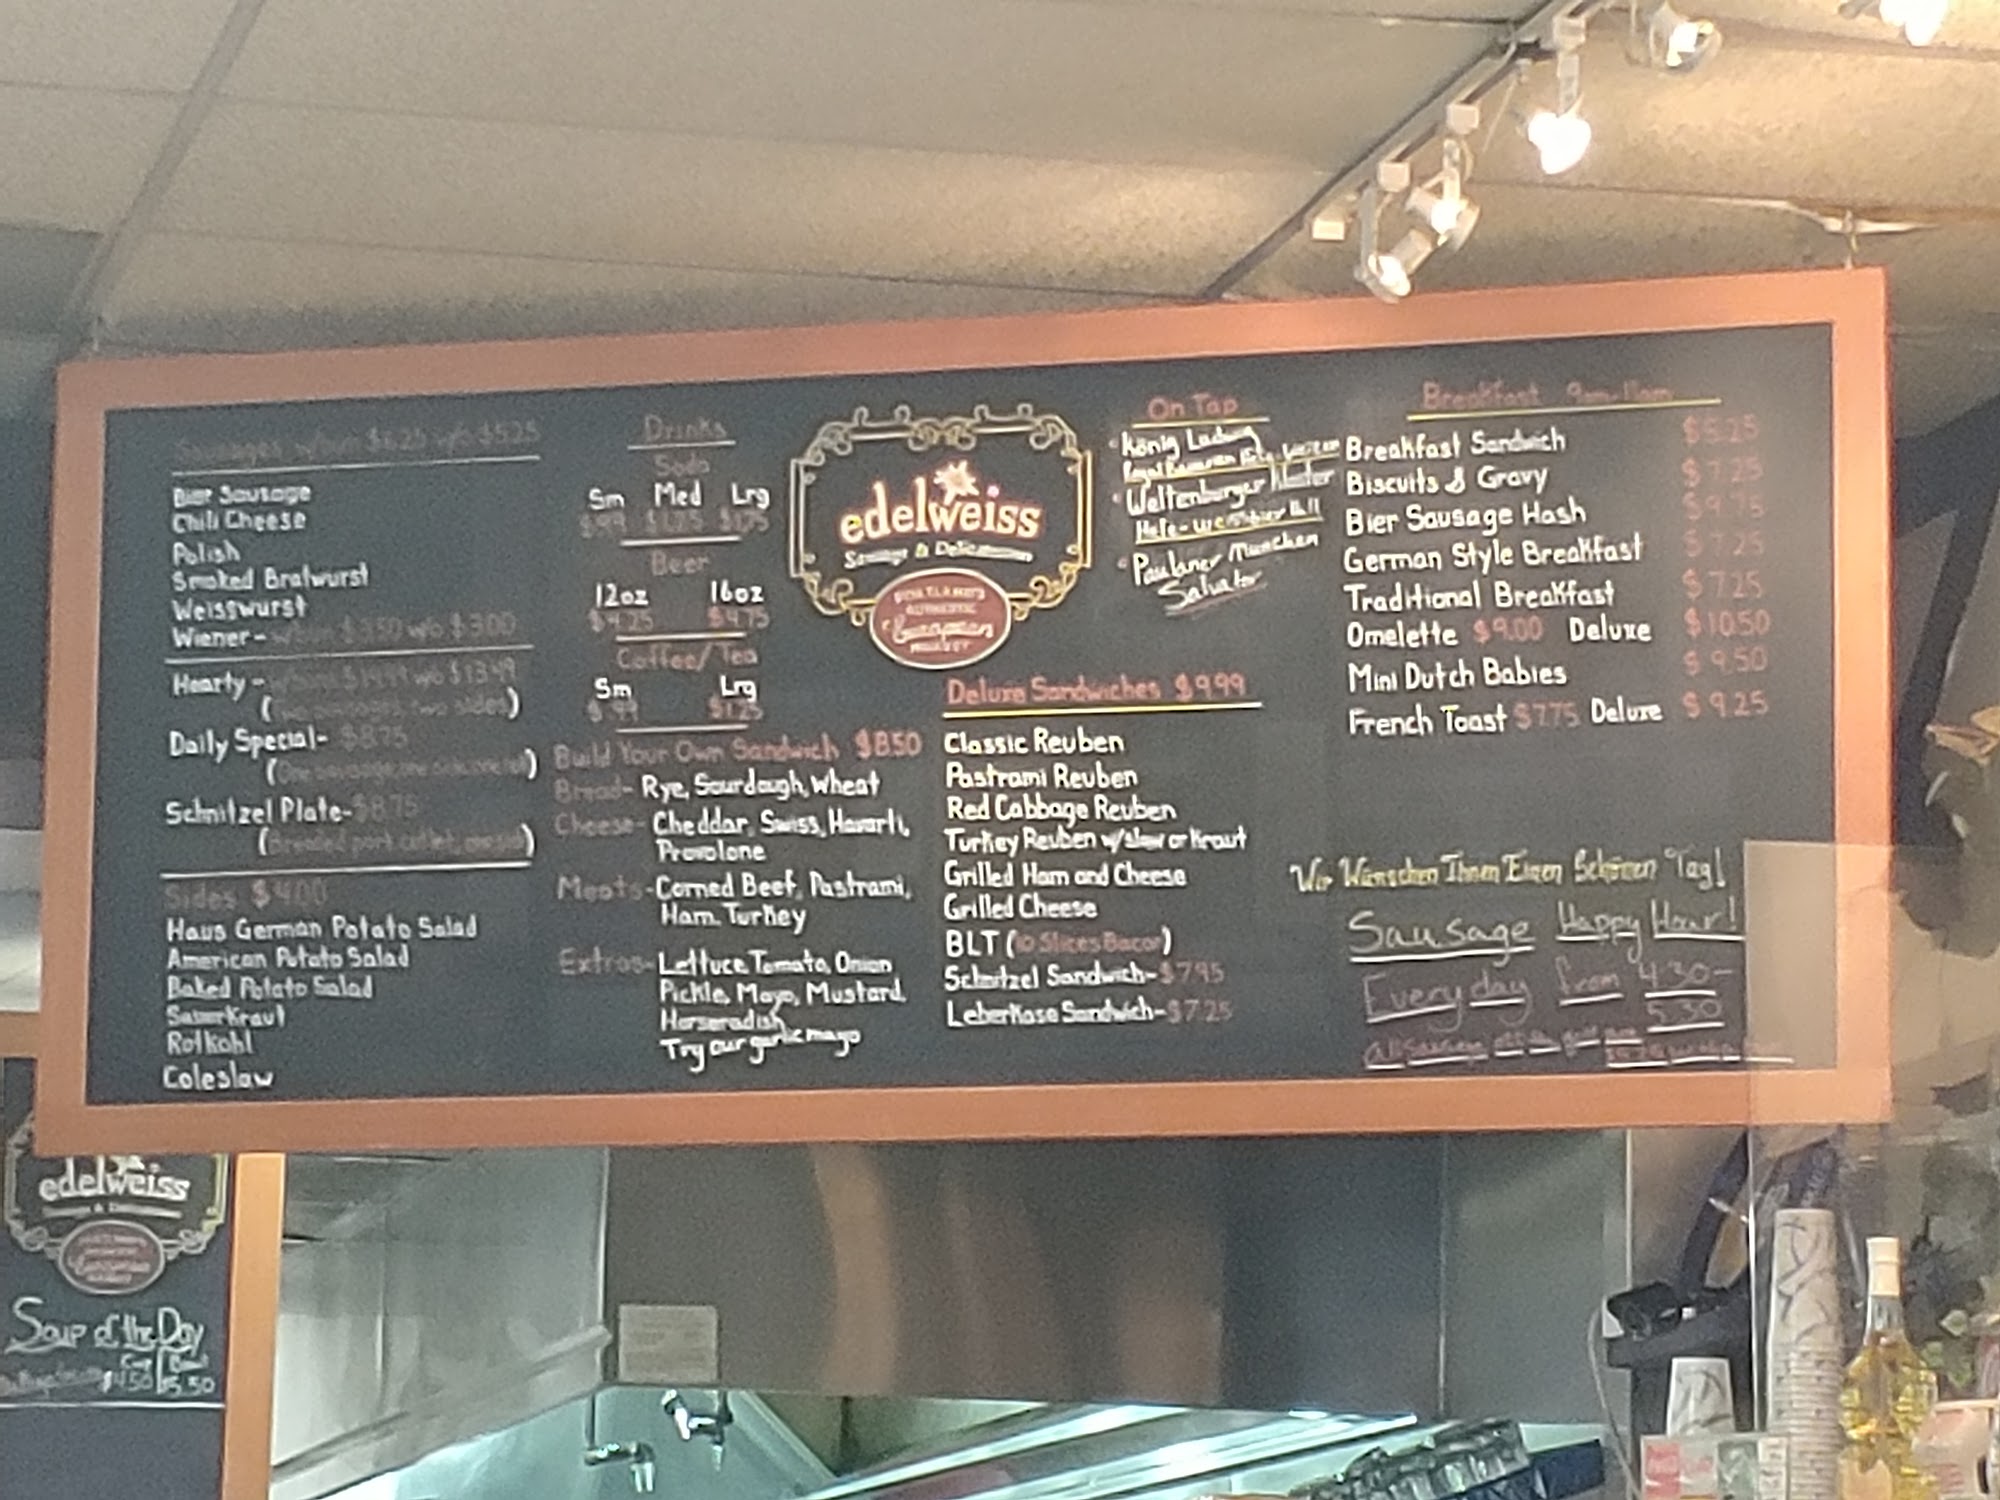 Sausages w/bun $6.25 w/o $5.25
Bier Sausage
Chili Cheese
Polish
Smoked Bratwurst
Weisswurst
Wiener - w/bun $3.50 w/o $3.00
Hearty -
(two sausages, two sides)
Daily Special - $8.75
(One sausage, one side, one
Schnitzel Plate - $8.75
(Breaded pork cutlet, one side)
Sides $4.00
Haus German Potato Salad
American Potato Salad
Baked Potato Salad
Sauerkraut
Rotkohl
Coleslaw
Drinks
Soda
Sm Med Lrg
$.99 $1.25 $1.75
Beer
12oz 16oz
$4.25 $4.75
Coffee/Tea
Sm Lrg
$.99 $1.25
Build Your Own Sandwich $8.50
Bread- Rye, Sourdough, Wheat
Cheese- Cheddar, Swiss, Havarti,
Provolone
Meats- Corned Beef, Pastrami,
Ham, Turkey
Extras- Lettuce, Tomato, Onion
Pickle, Mayo, Mustard,
Horseradish
Try our garlic mayo
edelweiss
Sausage & Delicatessen
PORTLAND'S
AUTHENTIC
European
MARKET
Deluxe Sandwiches $9.99
Classic Reuben
Pastrami Reuben
Red Cabbage Reuben
Turkey Reuben w/slaw or Kraut
Grilled Ham and Cheese
Grilled Cheese
BLT (10 Slices Bacon)
Schnitzel Sandwich- $7.95
Leberkase Sandwich- $7.25
On Tap
König Ludwig
Royal Bavarian Hefe-Weizen
Weltenburger Kloster
Hefe-Weissbier Hell
Paulaner München
Salvator
Breakfast 9am-11am
Breakfast Sandwich $5.25
Biscuits & Gravy $7.25
Bier Sausage Hash $9.75
German Style Breakfast $7.25
Traditional Breakfast $7.25
Omelette $9.00 Deluxe $10.50
Mini Dutch Babies $9.50
French Toast $7.75 Deluxe $9.25
Wir Wünschen Ihnen Einen Schönen Tag!
Sausage Happy Hour!
Everyday from 4:30-
5:30
edelweiss
Sausage & Delicatessen
European
Soup of the Day
Cup Bowl
$4.50 $5.50